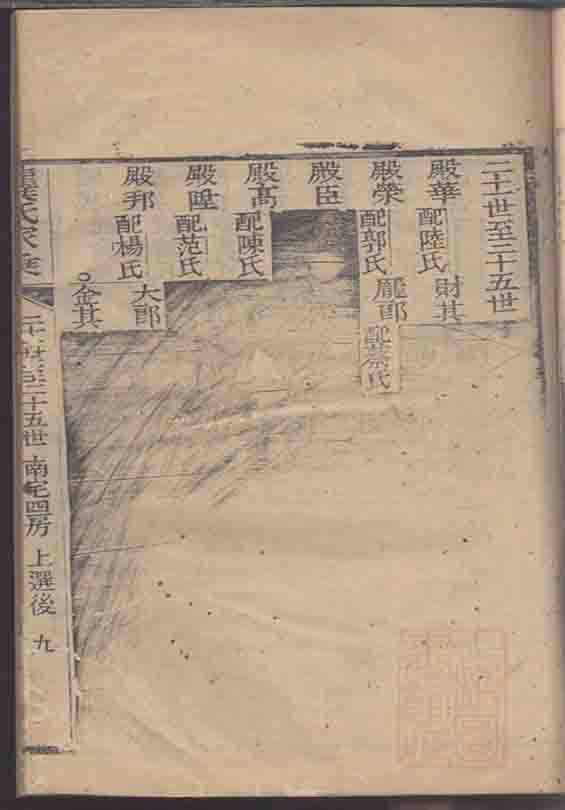 二十一世至二十五世
殿華 配陸氏 財其
殿榮 配郭氏 龎郎 配蔡氏
殿臣
殿高 配陳氏
殿陞 配范氏
殿邦 配楊氏 大郎
金其
氏家乘 二十一世至二十五世 南宅四房 上選後 九